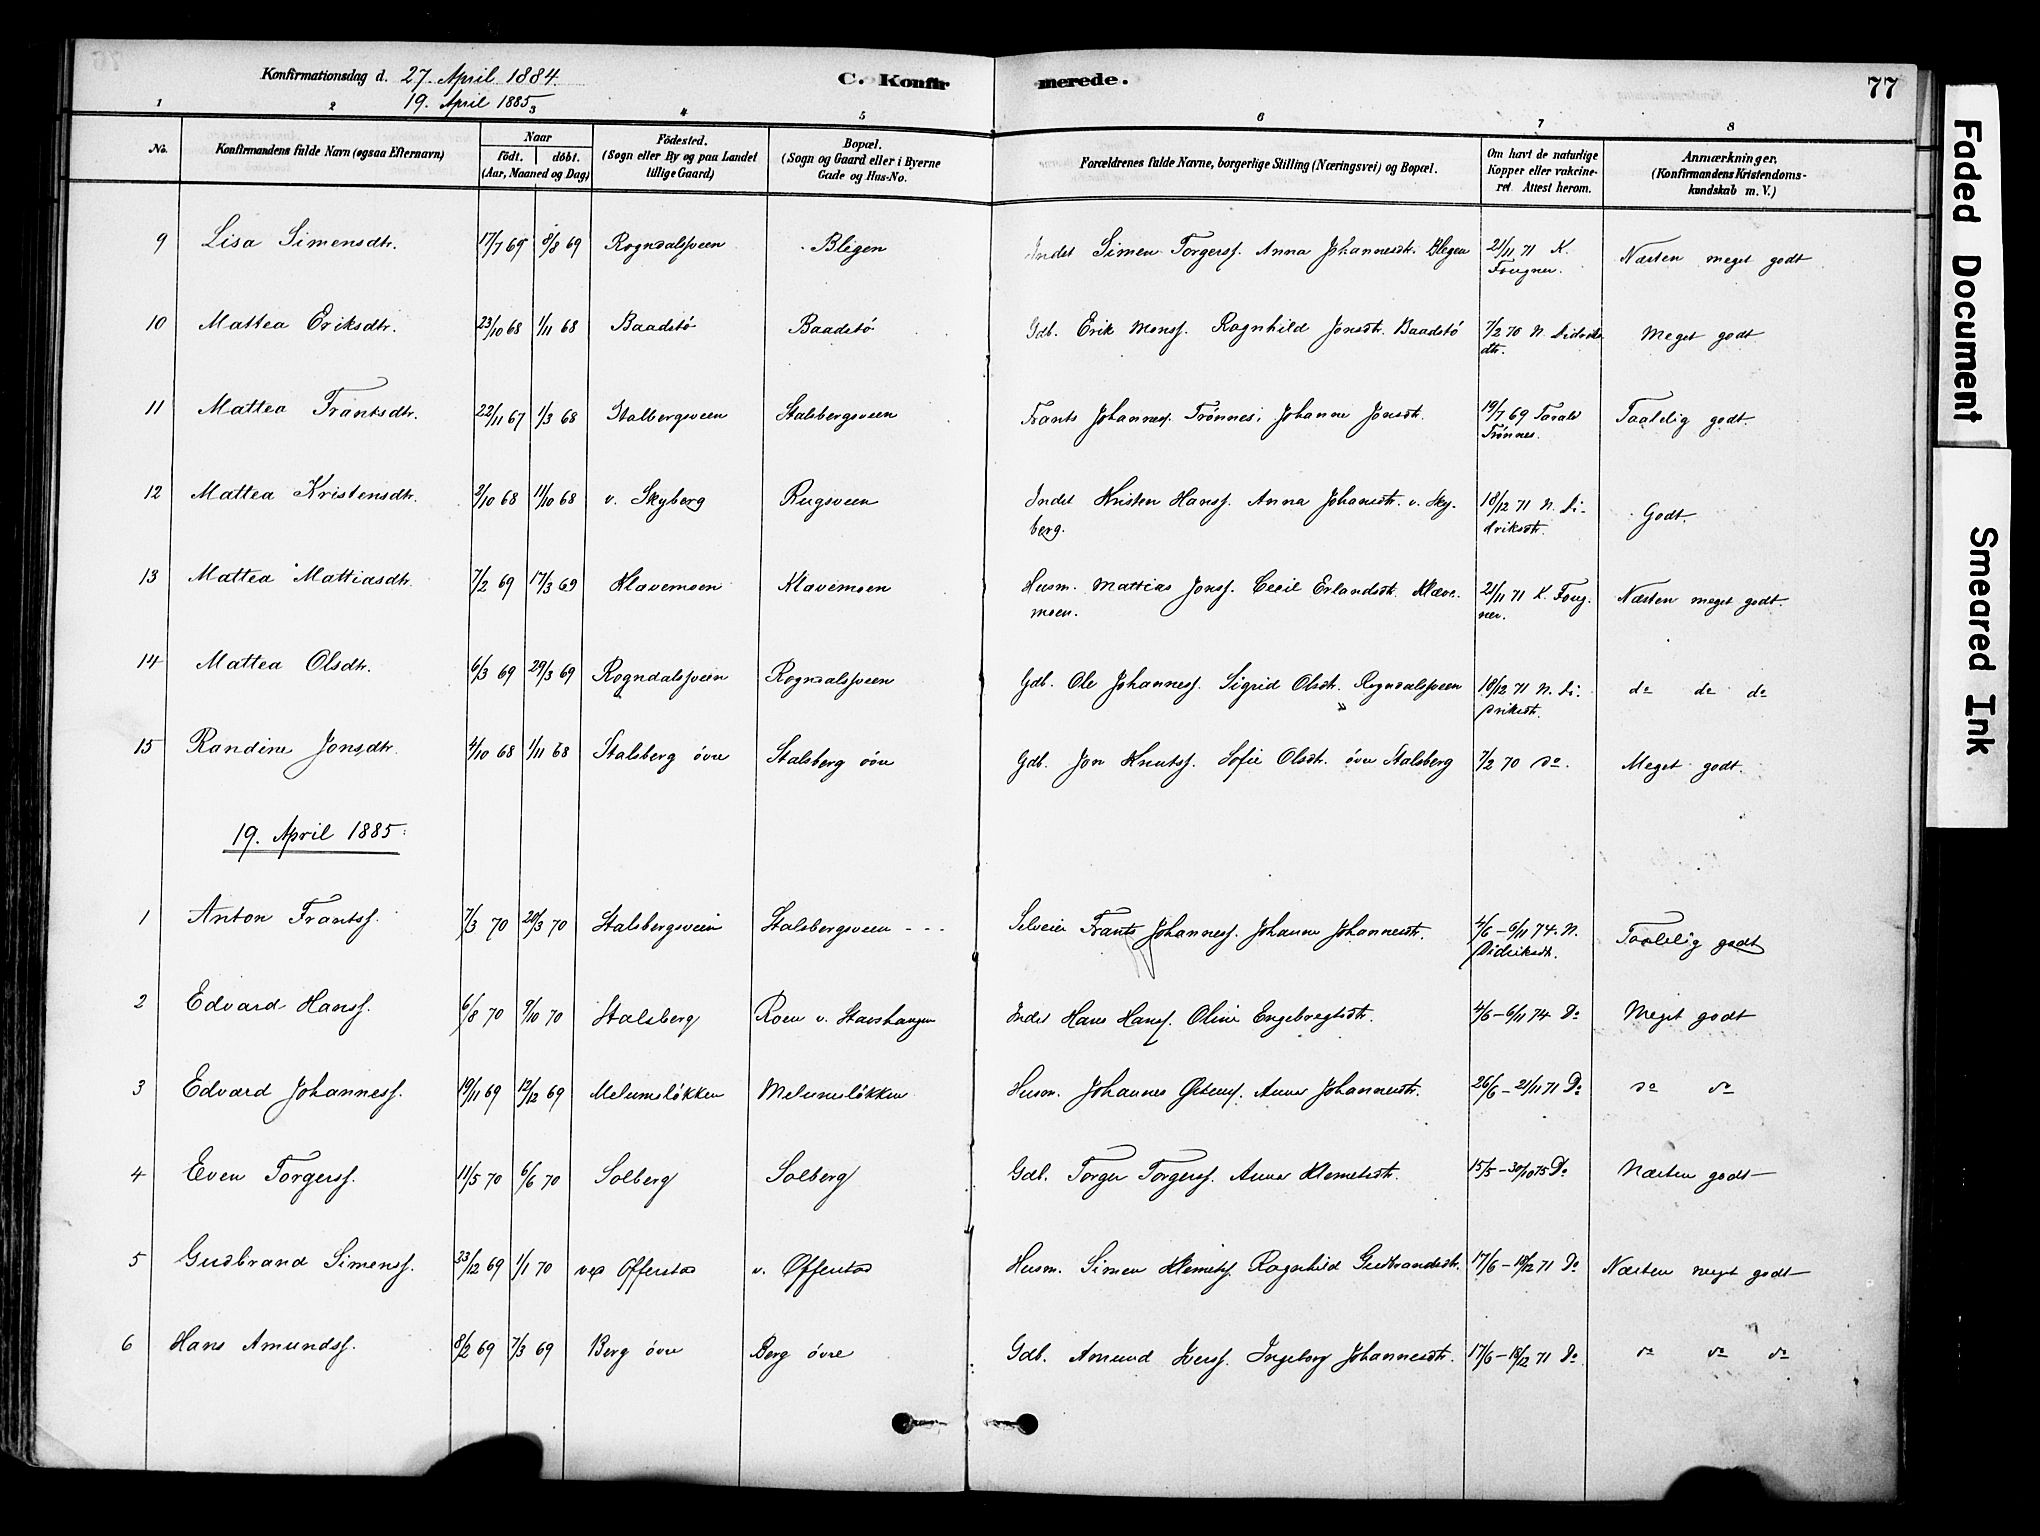 Konfirmationsdag d. 27. April 1884. C. Konfirmerede. 77
19. April 1885
1 2 3 4 5 6 7 8
No. Konfirmandens fulde Navn (ogsaa Efternavn) Naar født. døbt. (Aar, Maaned og Dag) Fødested. (Sogn eller By og paa Landet tillige Gaard) Bopæl. (Sogn og Gaard eller i Byerne Gade og Hus-No. Forældrenes fulde Navne, borgerlige Stilling (Næringsvei) og Bopæl. Om havt de naturlige Kopper eller vakcineret. Attest herom. Anmærkninger. (Konfirmandens Kristendomskundskab m. V.)
9 Lisa Simensdtr. 17/7 69 8/8 69 Rogndalsveen Bligen Indst Simen Torgerss. Anna Johannesdtr. Blegen 21/11 71 K. Fougner. Næsten meget godt
10 Mattea Eriksdtr. 23/10 68 1/11 68 Baadstø Baadstø Gdb. Erik Monss. Ragnhild Jonsdtr. Baadstø 7/2 70 N. Didriksdtr. Meget godt
11 Mattea Frantsdtr. 22/11 67 1/3 68 Stalbergsveen Stalsbergsveen Frants Johanness. Trønnes, Johanne Jonsdtr. 19/7 69 Trønnes. Taalelig godt.
12 Mattea Kristensdtr. 2/10 68 11/10 68 v. Skyberg Rugsveen Indst Kristen Hanss. Anna Johansdtr. v. Skyberg. 18/12 71 N. Didriksdtr. Godt.
13 Mattea Mattiasdtr. 7/2 69 17/3 69 Klavemoen Klavemoen Husm. Mattias Jonss. Cecil Erlandsdtr. Klævemoen. 21/11 71 K. Fougner. Næsten meget godt.
14 Mattea Olsdtr. 6/3 69 29/3 69 Rogndalsveen Rogndalsveen Gdb. Ole Johanness. Sigrid Olsdtr. Rogndalsveen 18/12 71 N. Didriksdtr. do do do
15 Randine Jonsdtr. 4/10 68 1/11 68 Stalsberg øvre Stalsberg øvre Gdb. Jon Knutss. Sofie Olsdtr. øvre Stalsberg 7/2 70 do. Meget godt.
19. April 1885.
1 Anton Frantss. 7/3 70 20/3 70 Stalsbergsveen Stalsbergsveen - - - Selveier Frants Johanness. Johanne Johannesdtr. 4/6 – 6/11 74. N. Didriksdtr. Taalelig godt
2 Edvard Hanss. 6/8 70 9/10 70 Stalsberg Roen v. Indst Hans Hanss. Oline Engebregtsdtr. 4/6 – 6/11 74 Do Meget godt
3 Edvard Johanness. 19/11 69 12/12 69 Melumsløkken Melumsløkken Husm. Johannes Østenss. Anna Johannesdtr. 26/6 – 21/11 71 Do do do
4 Even Torgerss. 11/5 70 6/6 70 Solberg Solberg Gdb. Torger Torgerss. Anne Klemetsdtr. 15/5 – 30/10 75 Do Næsten godt
5 Gudbrand Simenss. 23/12 69 1/1 70 ved Offerstad v. Offerstad Husm. Simen Klemetss. Ragnhild Gudbrandsdtr. 17/6 – 18/12 71 Do Næsten meget godt
6 Hans Amundss. 8/2 69 7/3 69 Berg øvre Berg øvre Gdb. Amund Iverss. Ingeborg Johannesdtr. 17/6 – 18/12 71 Do. do do do
Faded Document
Smeared Ink